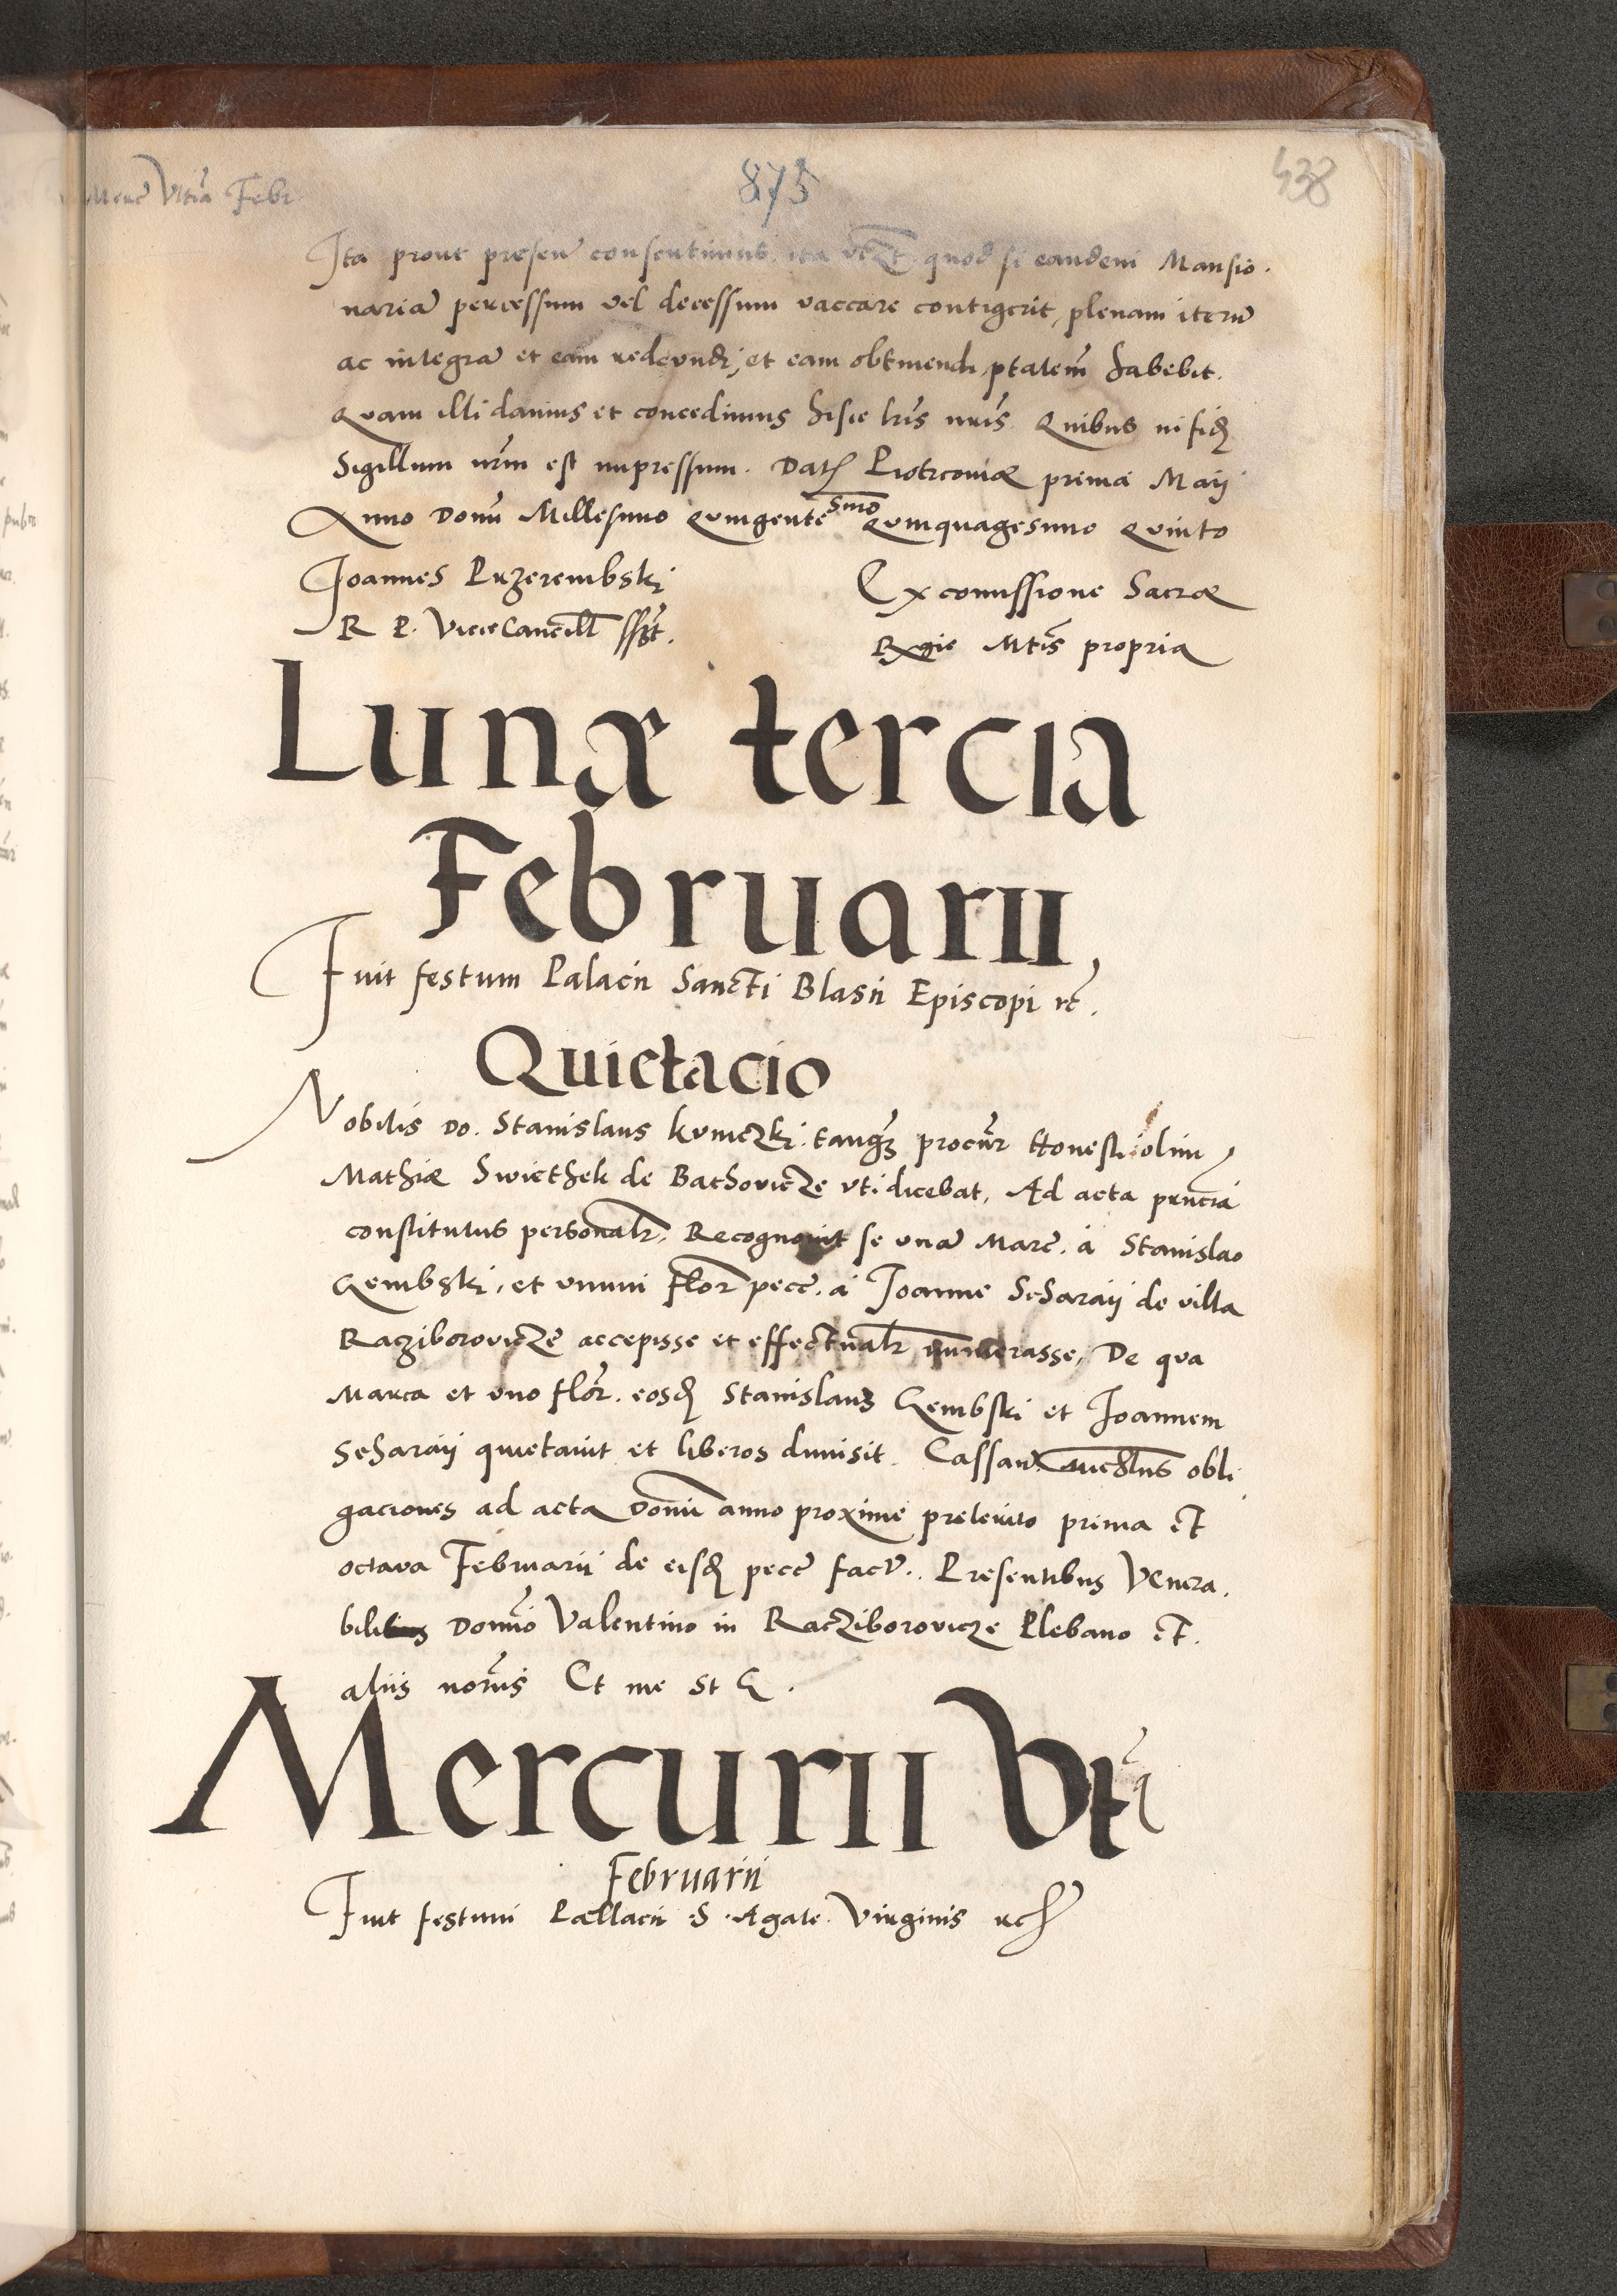 875
438
Ultia Febr
Ita prout presen consentimus, ita vczt quod si eandem Mansio-
naria percessum vel decessum vaccare contigerit, plenam iteru
ac integra et eam redeundi, et eam obtinendi ptatem habebit.
Quam illi damus et concedimus hisce lris nris. Quibus in fidē
Sigillum nrm est impressum. Dat Piotrcoviæ prima Maij
Anno Domi Millesimo Quingentesimo Quinquagesimo Quinto
Joannes Przerembski
R P. ViceCancill sspt.
Ex comissione Sacræ
Regie Mtis propria
Lunæ tercia
Februarii,
Fuit festum Palacii Sancti Blasii Episcopi rc.
Quietacio
Nobilis Do. Stanislaus kuniczki tanq3 procur Honesti olim
Mathiæ Swiethek de Bathovicze uti dicebat, Ad acta prncia
constitutus personalr, Recognovit se una Marc. a Stanislao
Gembski, et unum flor pecc. a Joanne Seharaij de villa
Racziborovicze accepisse et effectualr numerasse, De qua
Marca et uno flor. eosd Stanislaum Gembski et Joannem
Seharaij quietavit et liberos dimisit. Cassan obli
gaciones ad acta Domi anno proxime preterito prima et
octava Februarii de eisd pecc fact. Presentibus Venera-
bili Domio Valentino in Racziborovicze Plebano et
aliis noriis Et me St G.
Mercurii Vta
Februarii
Fuit festum Pallacii S. Agate Virginis rc